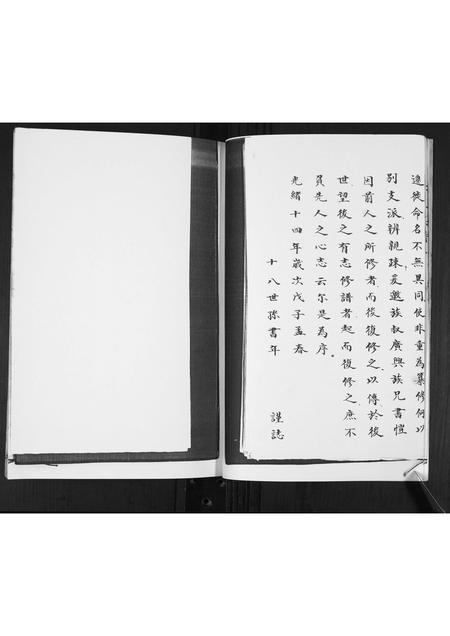 遷徙命名不無異同使非重為纂修何以
別支派辨親疎爰邀族叔廣興族兄書愷
因前人之所修者而復修之以傳於後
世望後之有志修譜者起而復修之庶不
負先人之心志云尔是為序。
光緒十四年歲次戊子孟春
十八世孫書年 謹誌